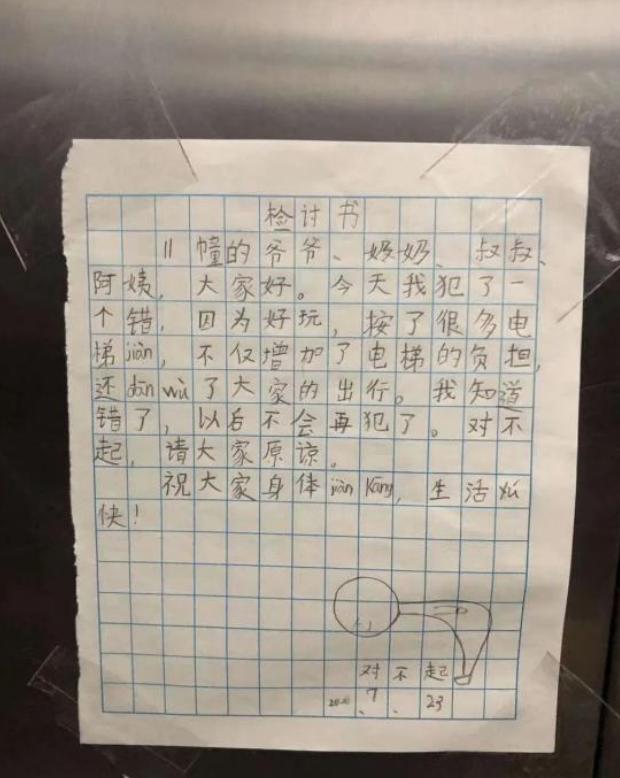 检讨书
11幢的爷爷、奶奶、叔叔、
阿姨，大家好。今天我犯了一
个错，因为好玩，按了很多电
梯jiàn，不仅增加了电梯的负担，
还dānwù了大家的出行。我知道
错了，以后不会再犯了。对不
起，请大家原谅。
祝大家身体jiànkāng，生活yú
快！
对不起
2020、7、23